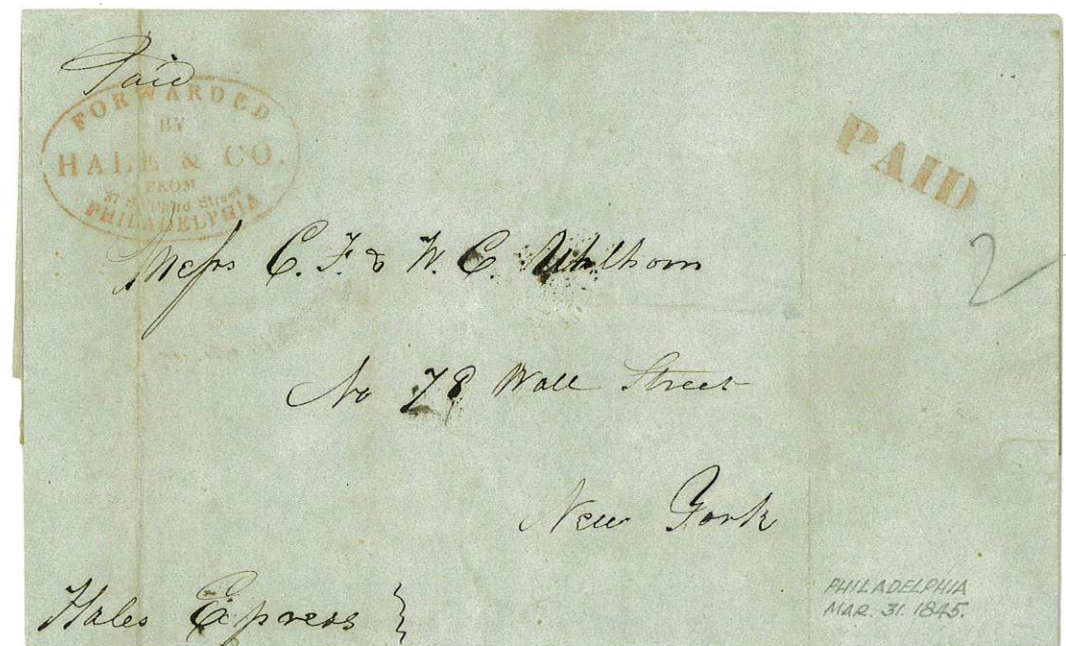 Paid
FORWARDED
BY
HALE & CO.
FROM
37 So. Third Street
PHILADELPHIA
PAID
2
Messrs C. F. & W. C. Uhlhorn
No 78 Wall Street
New York
Hales Express
PHILADELPHIA
MAR. 31. 1845.